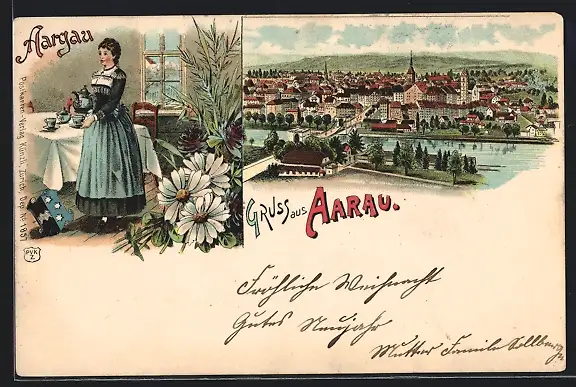 Aargau
Postkarten-Verlag Künzli, Zürich. Dep. Nr. 1037
PVK
Z.
GRUSS aus AARAU.
Fröhliche Weihnacht
Gutes Neujahr
Mutter Famile Sollberger